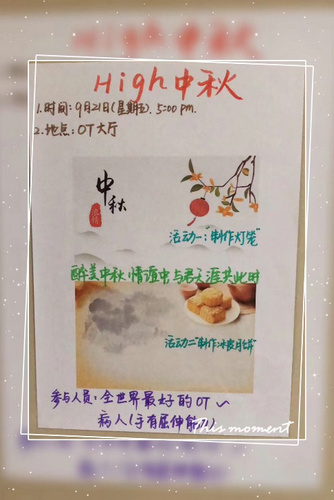 High中秋
1.时间:9月21日(星期五). 5:00 pm.
2.地点:OT大厅
中秋
活动一:"制作灯笼"
醉美中秋 情源中与君天涯共此时
活动二"制作冰皮月饼"
参与人员:全世界最好的OT～
病人(手有屈伸
This moment